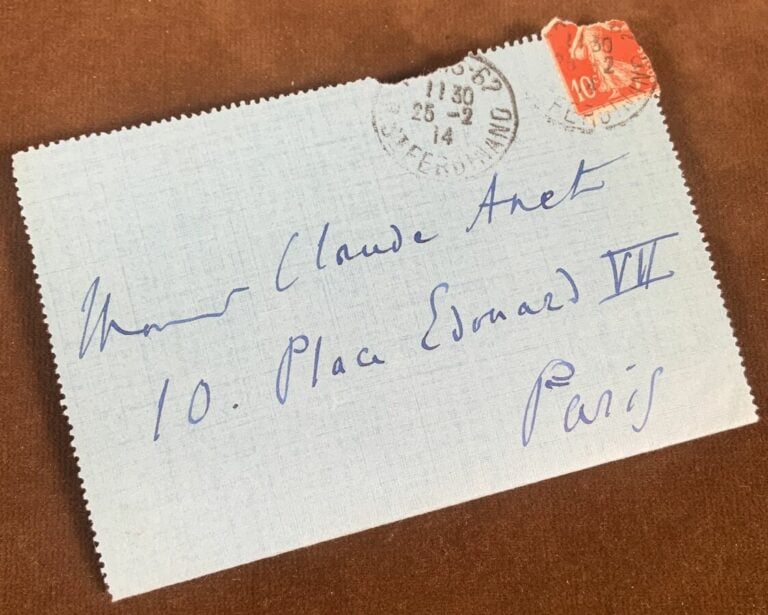 11 30
25 -2
14
ST FERDINAND
30
-2
10
Claude Anet
10. Place Edouard VII
Paris